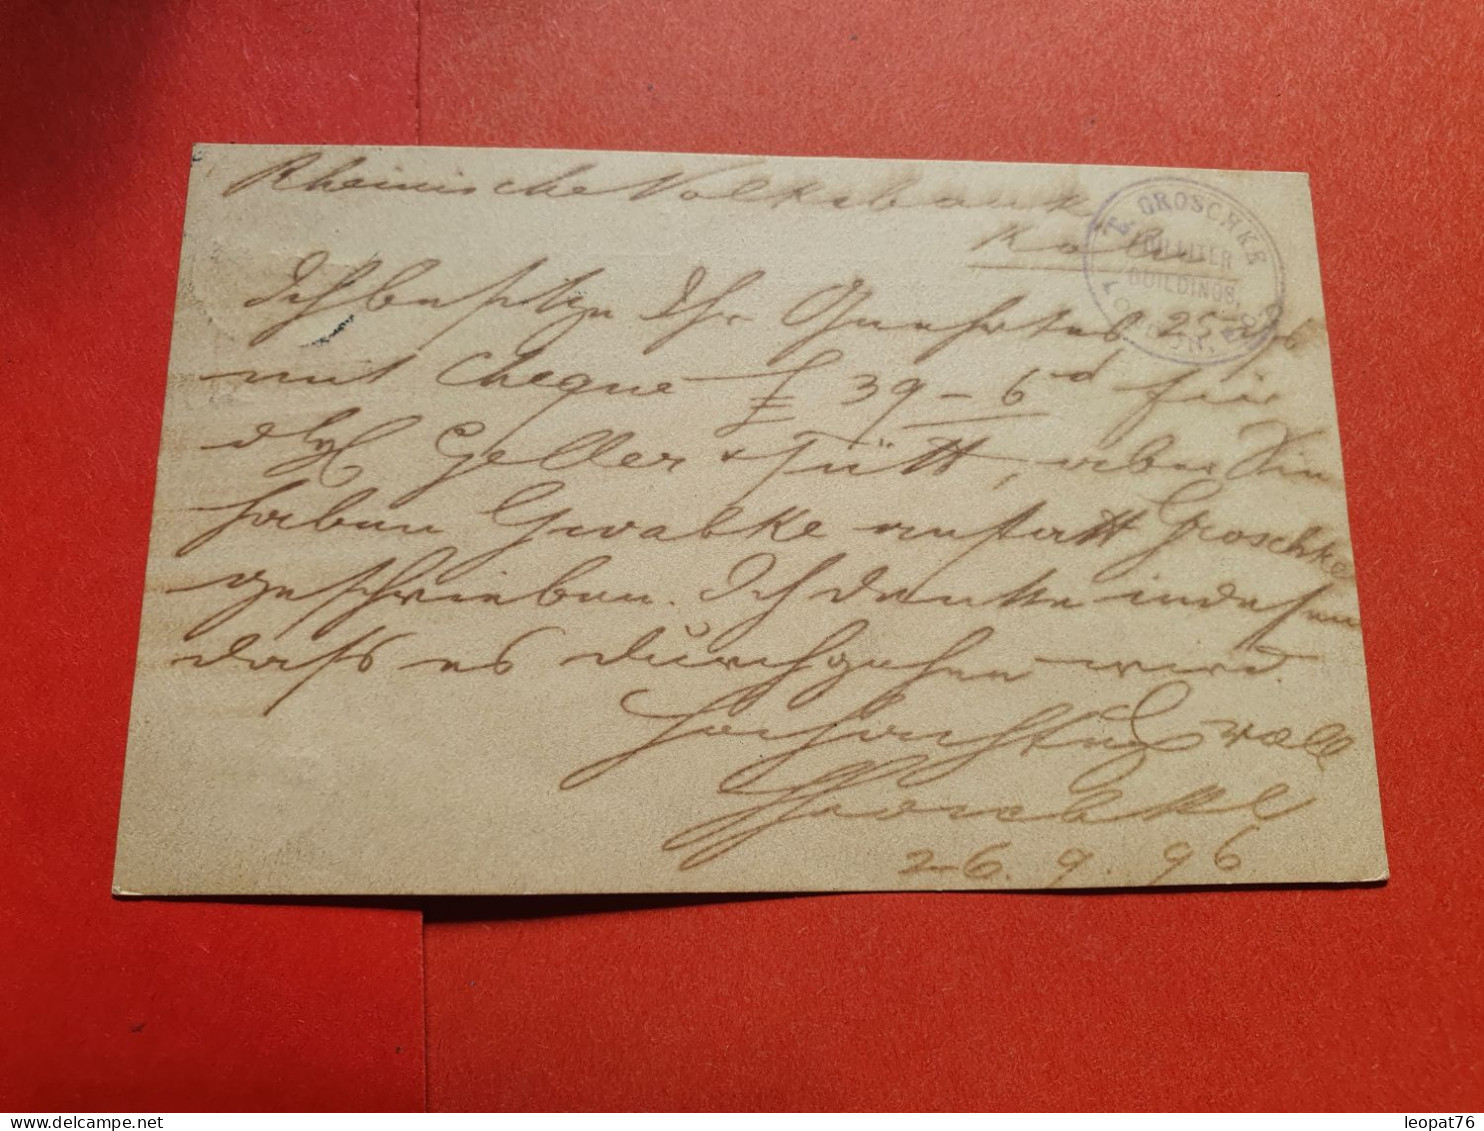 Rheinische Volksbank
Köln
T. GROSCHKE
BUILDINGS,
LONDON, E.C.
Ich besitze Ihr Geehrtes 25 ds
mit Cheque £ 39 - 6d für
Geller & Tütt, aber Sie
haben Gwalke anstatt Groschke
geschrieben. Ich denke indessen
dass es durchgehen wird.
Hochachtungsvoll
Groschke
26. 9. 96
leopat76